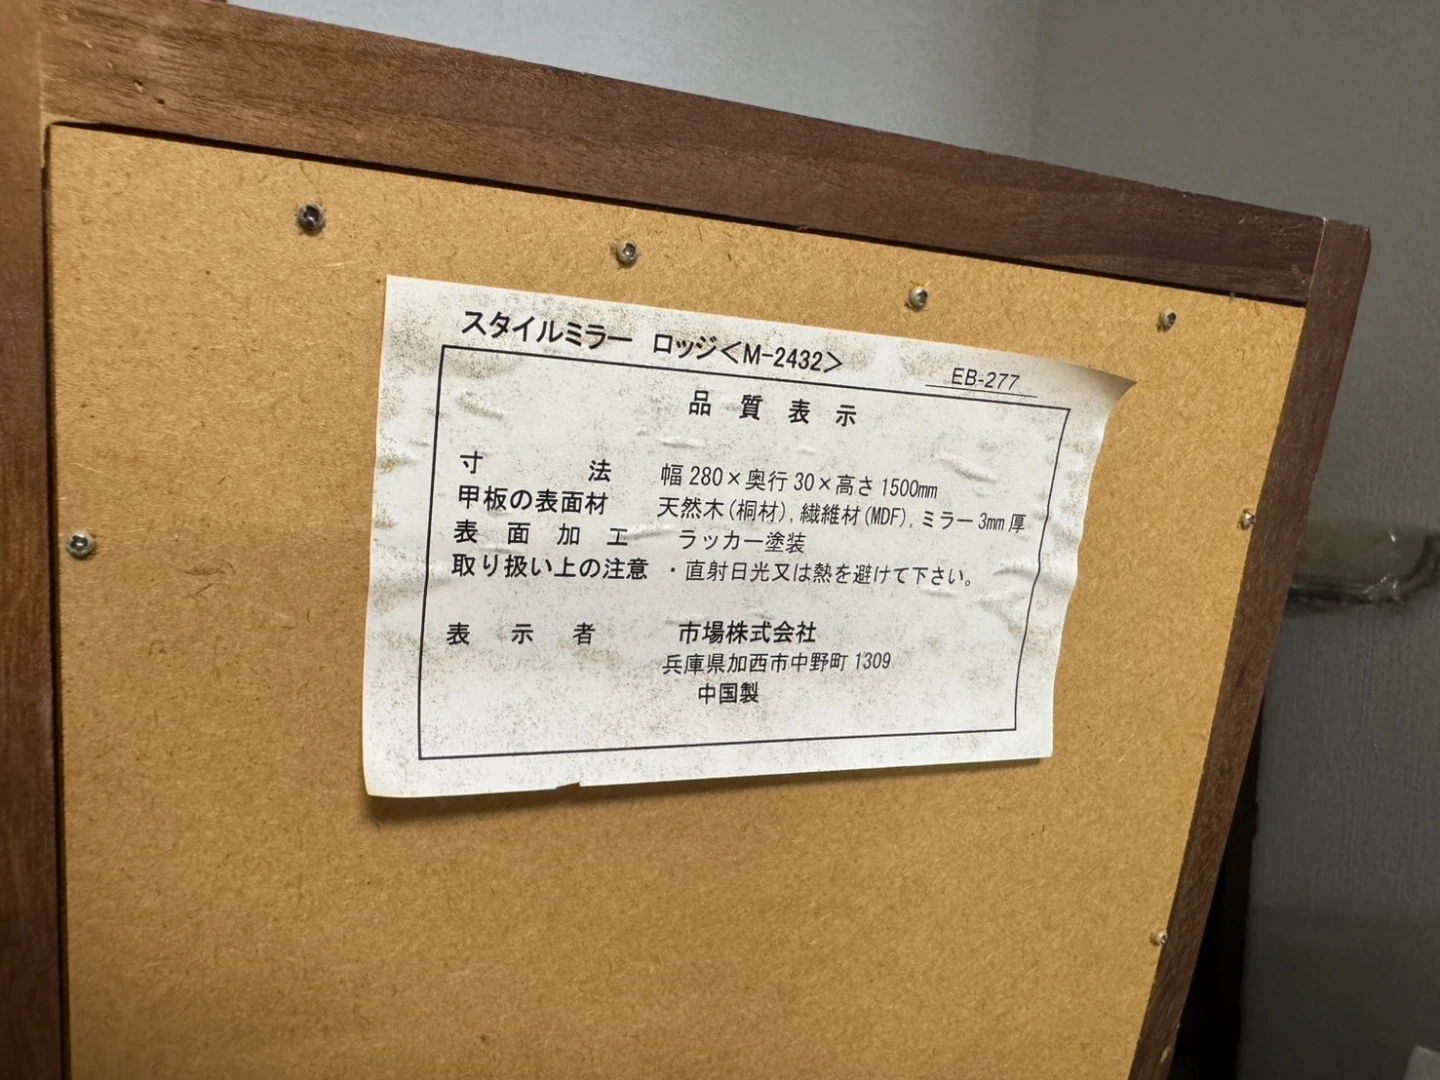 スタイルミラー ロッジ<M-2432>
EB-277
品質表示
寸法 幅280×奥行30×高さ1500mm
甲板の表面材 天然木(桐材),繊維材(MDF),ミラー3mm厚
表面加工 ラッカー塗装
取り扱い上の注意 ・直射日光又は熱を避けて下さい。
表示者 市場株式会社
兵庫県加西市中野町1309
中国製